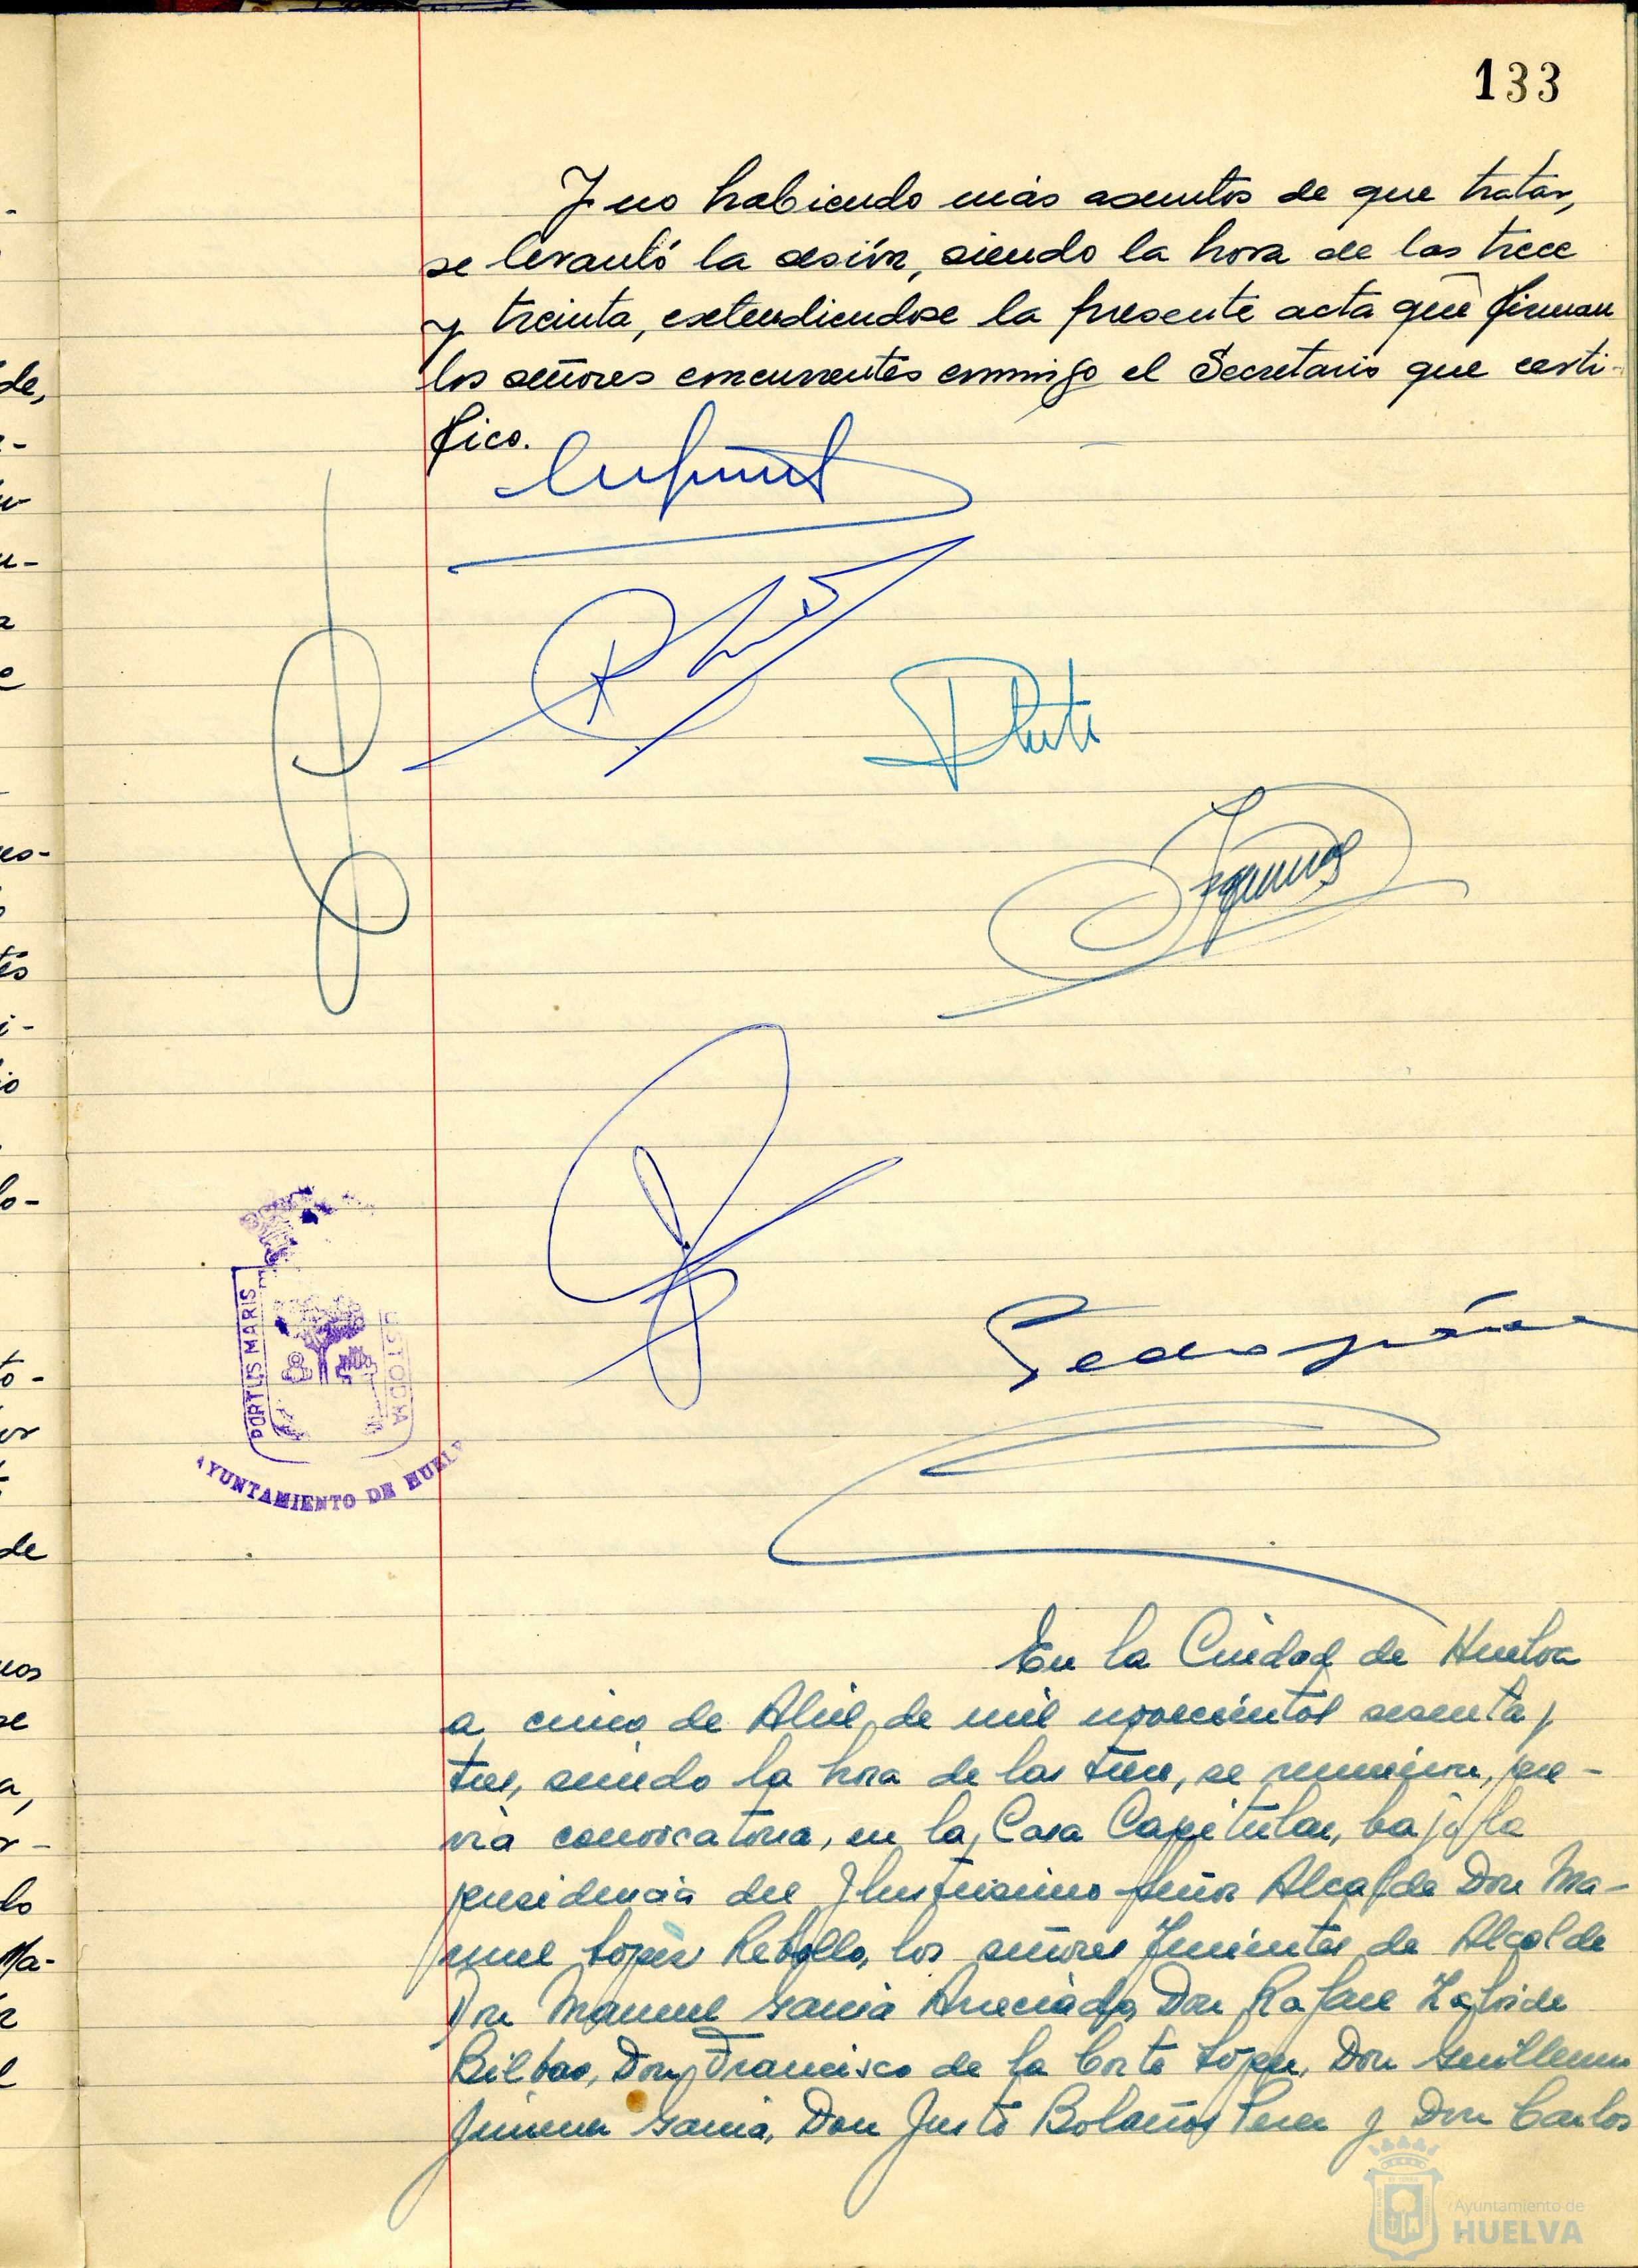 133
Y no habiendo más asuntos de que tratar,
se levantó la sesión, siendo la hora de las trece
y treinta, extendiendose la presente acta que firman
los señores concurrentes conmigo el Secretario que certi-
fico.
PORTUS MARIS
CUSTODIA
AYUNTAMIENTO DE HUELV
En la Ciudad de Huelva
a cinco de Abril de mil novecientos sesenta y
tres, siendo la hora de las trece, se reunieron, pre-
via convocatoria, en la Casa Capitular, bajo la
presidencia del Ilustrisimo Señor Alcalde Don Ma-
nuel López Rebollo, los señores Tenientes de Alcalde
Don Manuel Garcia Don Rafael
Bilbao, Don Francisco de la Corte López, Don Guillermo
Jimenez Garcia, Don Justo Bolaños Perez y Don Carlos
Ayuntamiento de
HUELVA